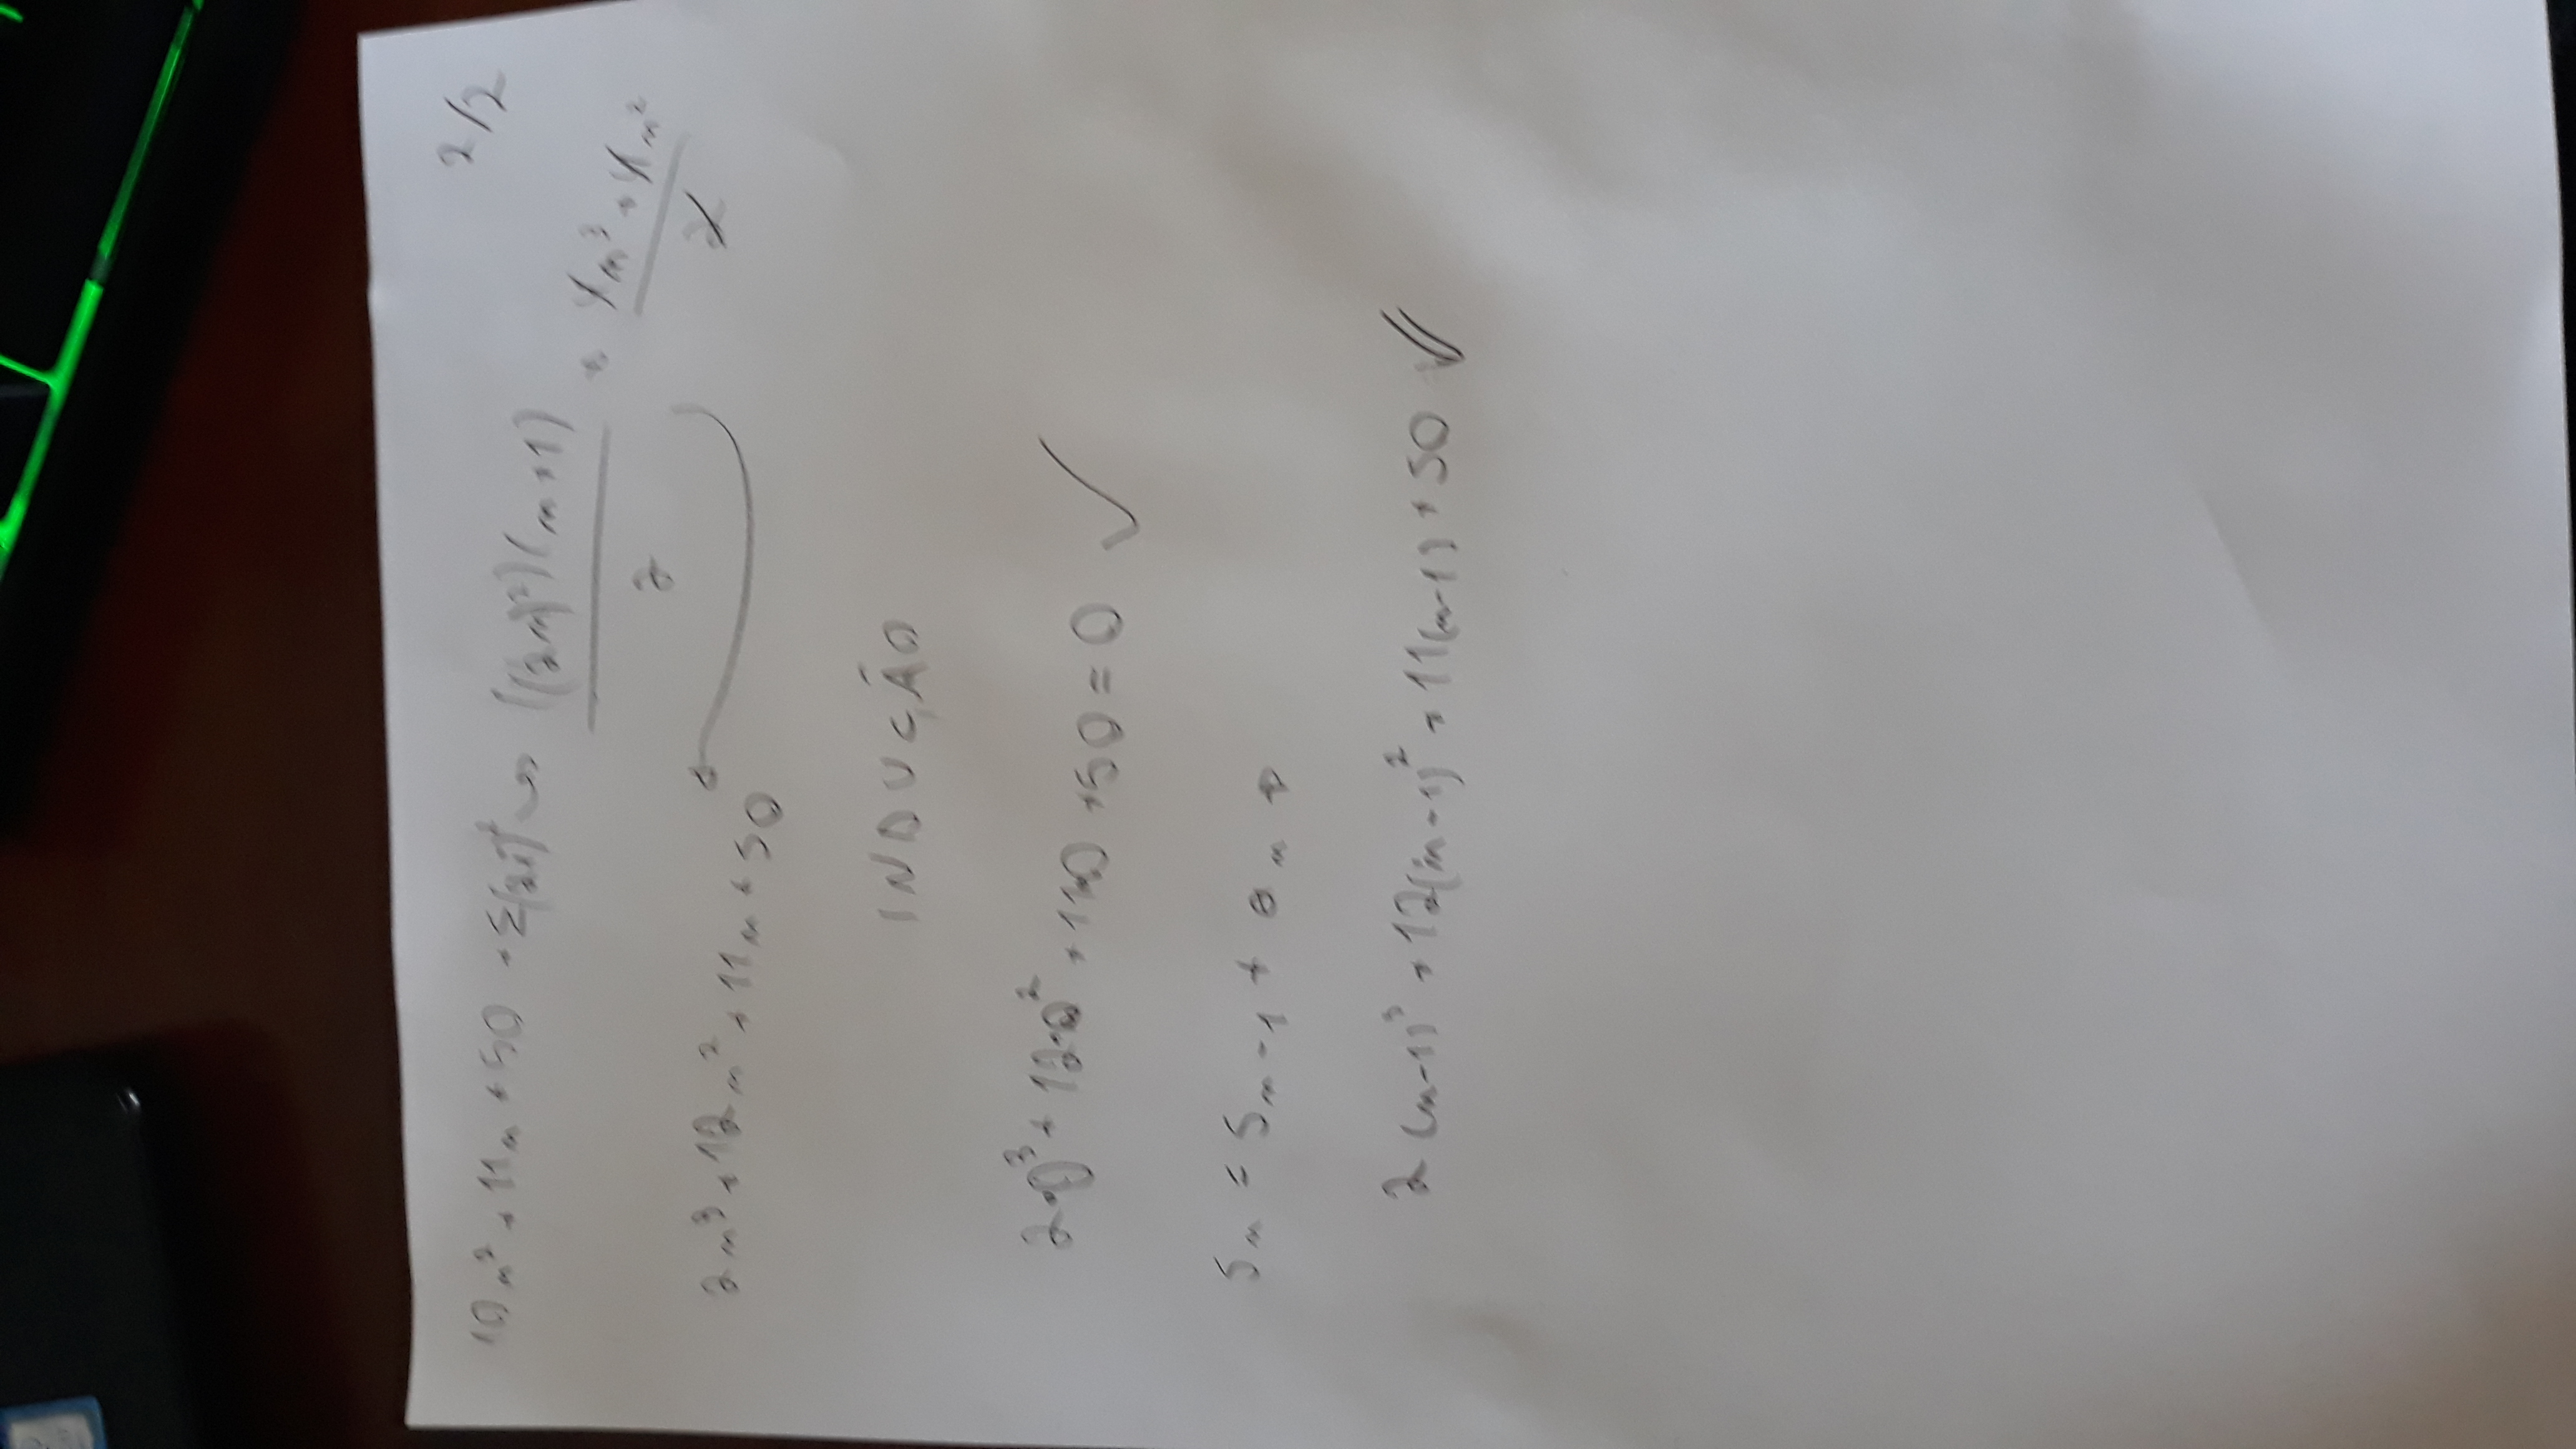 2/2
10n² + 11n + 50 + Σ(2i)² → ((2n)²)(n+1) / 2 = 4n³ + 4n² / 2
2n³ + 12n² + 11n + 50
INDUÇÃO
2·0³ + 12·0² + 11·0 + 50 = 0 ✓
Sn = Sn-1 + an →
2(n-1)³ + 12(n-1)² + 11(n-1) + 50 ✓